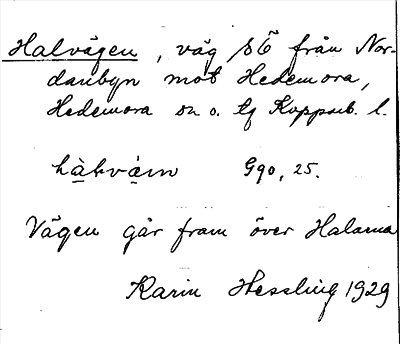 Halvägen, väg SÖ från Nor-
danbyn mot Hedemora,
Hedemora sn o. tg Kopparb. l.
Ggo, 25.
Vägen går fram över Halarna
Karin Hessling 1929